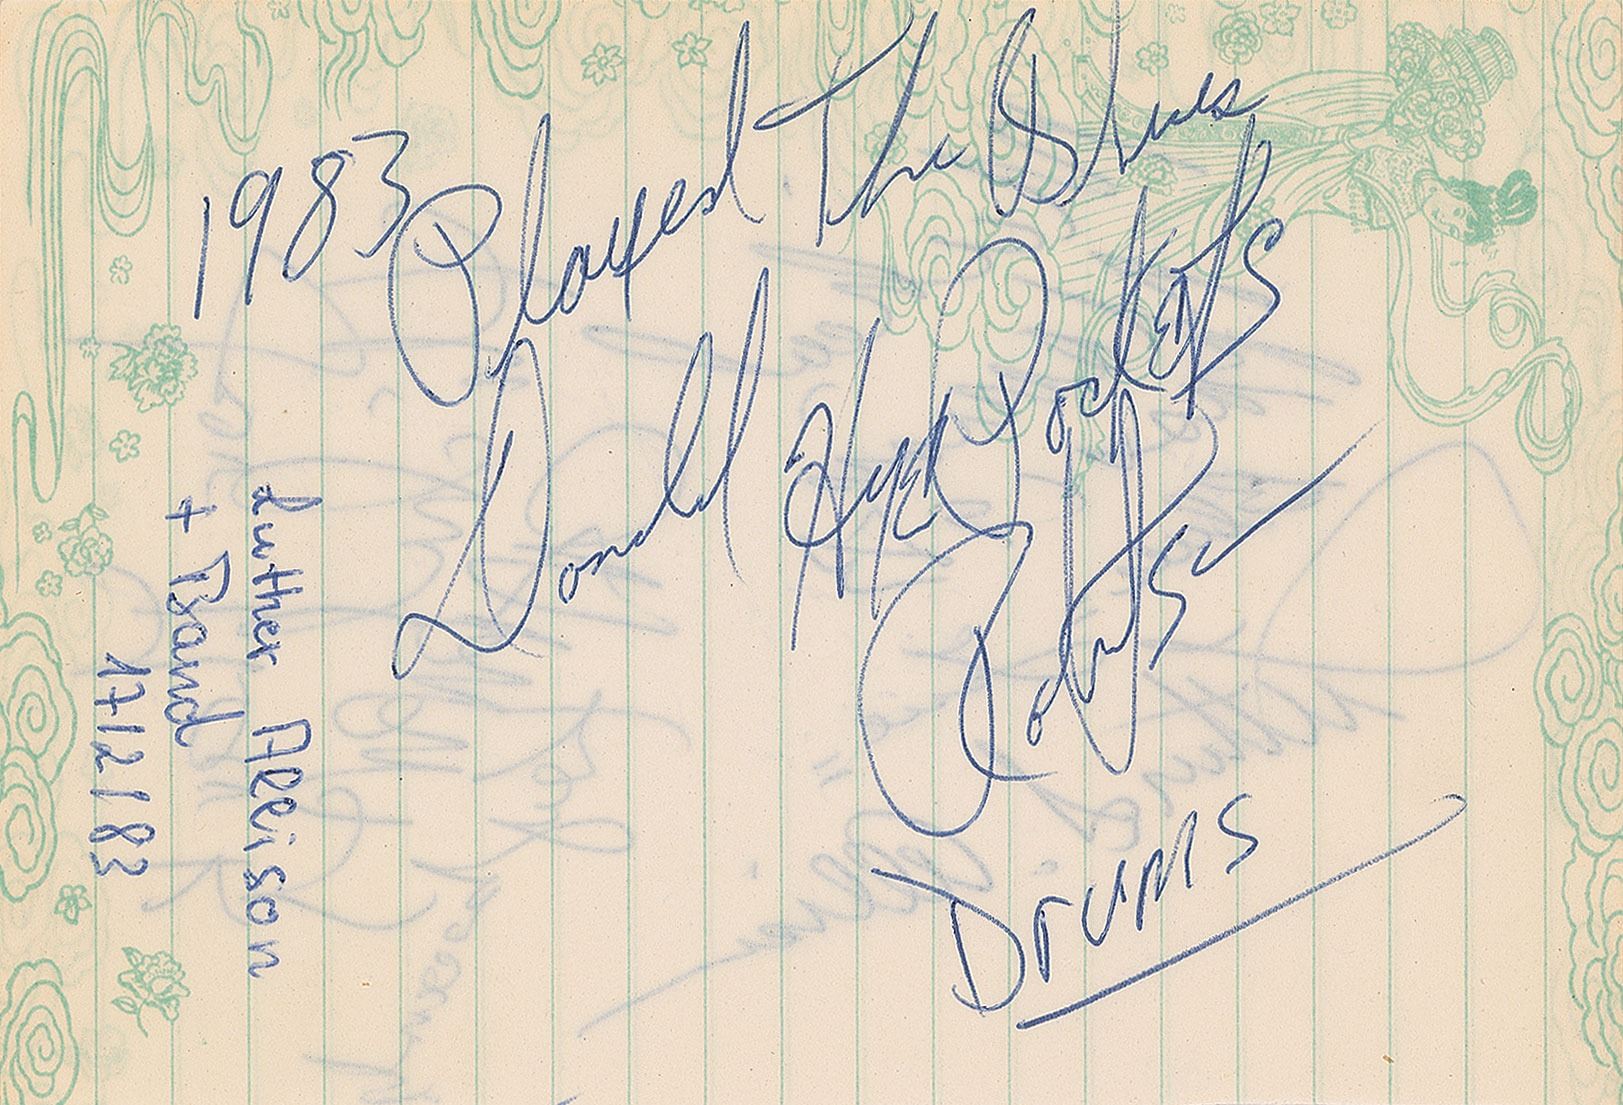 1983 Played The Blues
Donald Hye Pockets
Robertson
Drums
Luther Allison
+ Band
17/2/83